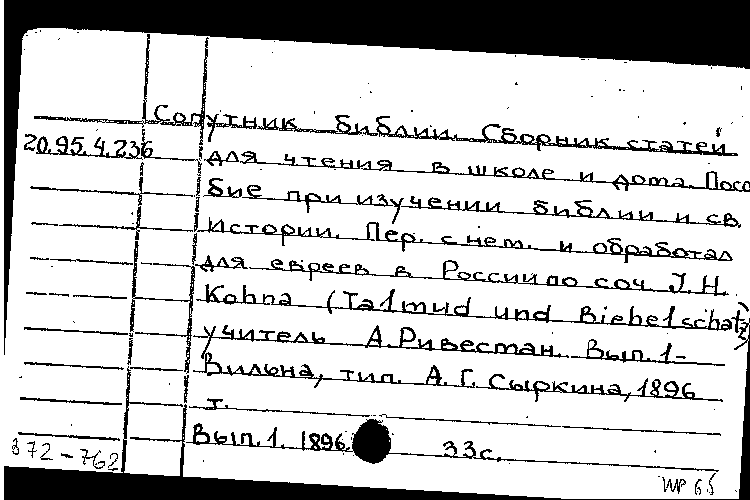 Сопутник библии. Сборник статей
20.95.4.236 для чтения в школе и дома. Посо
бие при изучении библии и св.
истории. Пер. с нем. и обработал
для евреев в России по соч. J. H.
Kohna (Talmud und Biebelschatz)
учитель А. Ривестан. Вып. 1-
Вильна, тип. А. Г. Сыркина, 1896
т.
Вып. 1. 1896. 33с.
872-762
WP 65